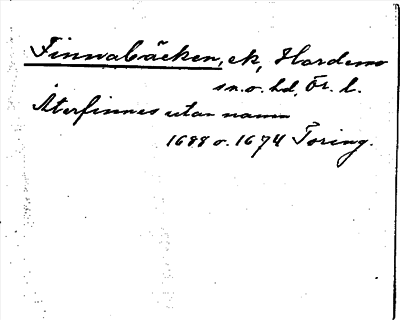 Finnabäcken, ek, Hardemo
sn. o. hd, Ör. l.
Återfinnes utan namn
1688 o. 1674 Toring.